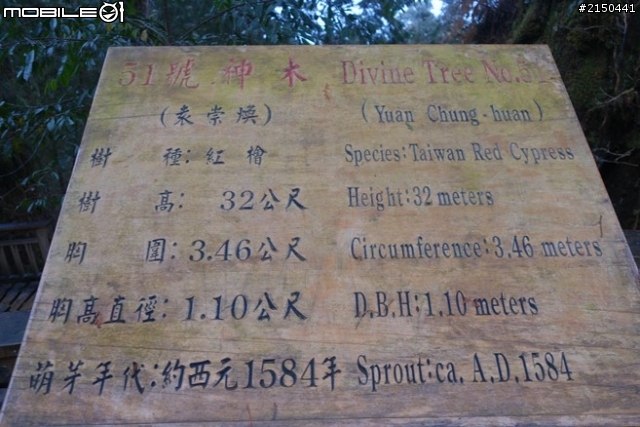 MOBILE01
#2150441
51號神木 Divine Tree No.51
(袁崇煥) (Yuan Chung-huan)
樹種:紅檜 Species:Taiwan Red Cypress
樹高: 32公尺 Height:32 meters
胸圍:3.46公尺 Circumference:3.46 meters
胸高直徑:1.10公尺 D.B.H:1.10 meters
萌芽年代:約西元1584年 Sprout:ca. A.D.1584